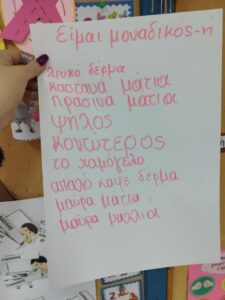 Είμαι μοναδικός-η
λευκο δέρμα
καστανά ματια
πρασινα ματια
ψηλος
κοντυτερος
το χαμόγελο
απαλό καφε δέρμα
μαύρα μάτια
μαύρα μαλλια